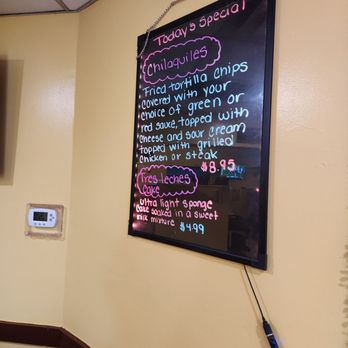 Today's Special
Chilaquiles
Fried tortilla chips
covered with your
choice of green or
red sauce, topped with
cheese and sour cream
topped with grilled
chicken or steak
$8.95
Tres leches
cake
ultra light sponge
cake soaked in a sweet
milk mixture $4.99